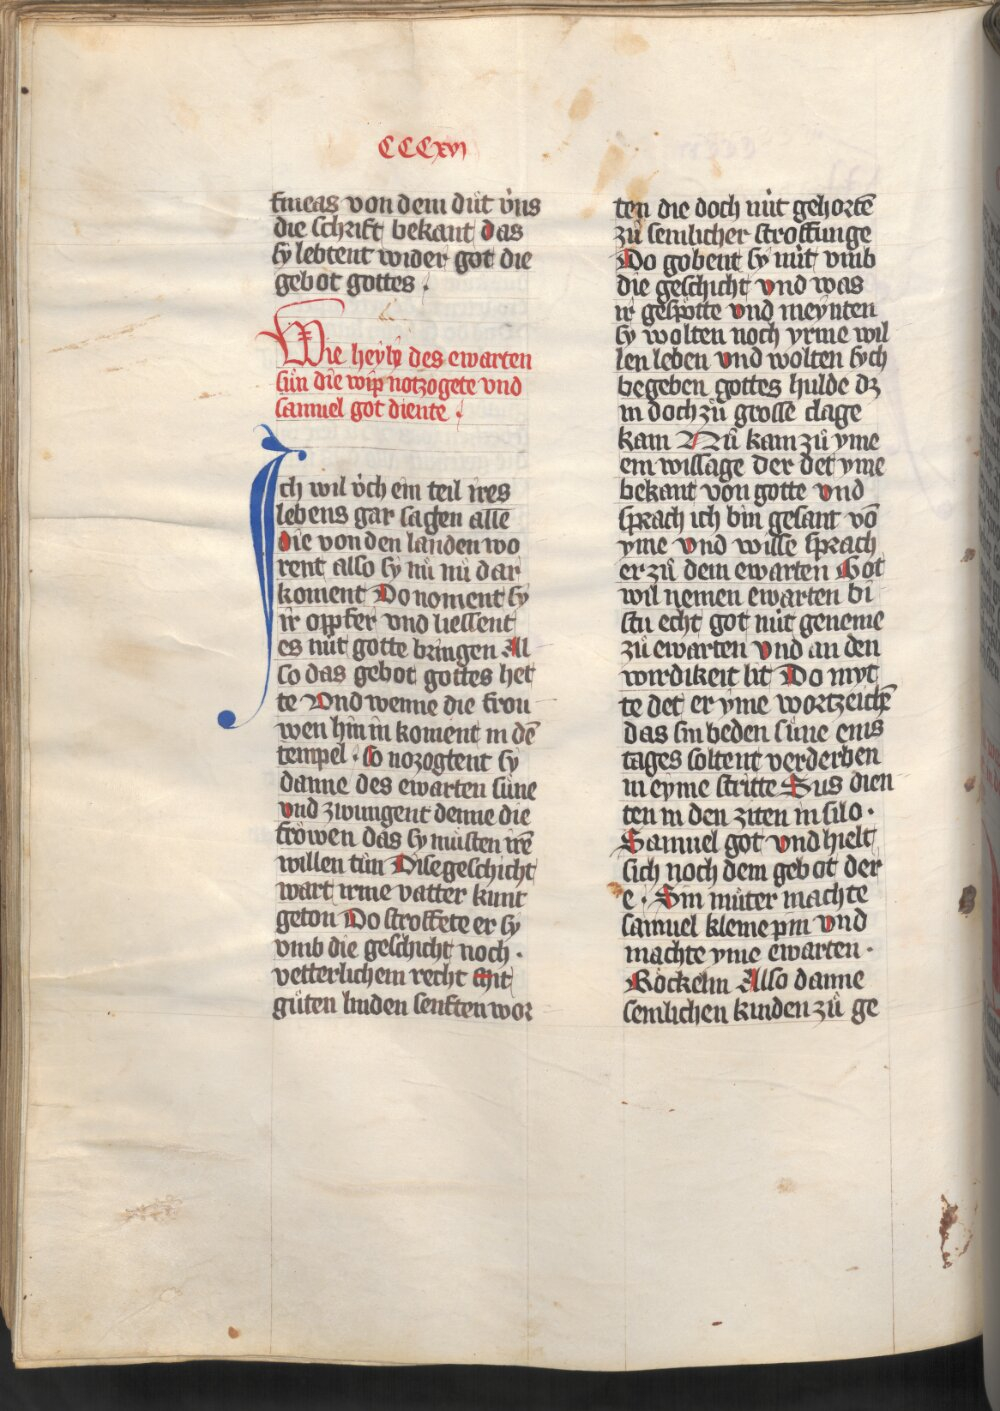 CCCxvi
fineas von dem dut v́ns
die schrift bekant das
sy lebtent wider got die
gebot gottes .
Wie heyly des ewarten
sún die wip notzogete vnd
samuel got diente .
Ich wil v́ch ein teil ires
lebens gar sagen alle
die von den landen wo
rent also sy nů nů dar
koment Do noment sy
ir oppfer vnd liessent
es nút gotte bringen Al
so das gebot gottes het
te Vnd wenne die frou
wen hin in koment in dē
tempel . so nozogtent sy
danne des ewarten súne
vnd zwungent denne die
frówen das sy můsten irē
willen tůn Dise geschicht
wart irme vatter kunt
geton Do stroffete er sy
vmb die geschicht noch .
vetterlichem recht Mit
gůten linden senften wor
ten die doch nút gehortē
zů semlicher stroffunge
Do gobent sy nút vmb
die geschicht vnd was
ir gespótte vnd meynten
sy wolten noch yrme wil
len leben vnd wolten sych
begeben gottes hulde dz
in doch zů grosse clage
kam Nů kam zů yme
ein wissage der det yme
bekant von gotte vnd
sprach ich bin gesant vō
yme vnd wisse sprach
er zů dem ewarten Got
wil nemen ewarten bi
stu echt got nút geneme
zů ewarten vnd an den
wirdikeit lit Do myt
te det er yme wortzeichē
das sin beden súne eins
tages soltent verderben
in eyme stritte Sus dien
ten in den ziten in silo .
Samuel got vnd hielt
sich noch dem gebot der
e . Sin můter machte
samuel kleine pin vnd
machte yme ewarten .
Róckelin Also danne
semlichen kinden zů ge